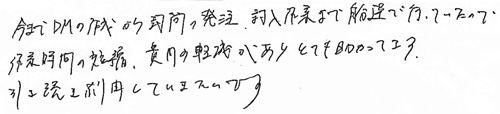 今までDMの作成から封筒の発注、封入作業まで別途で行っていたので
作業時間の短縮、費用の軽減がありとても助かってます。
引き続き利用していきたいです